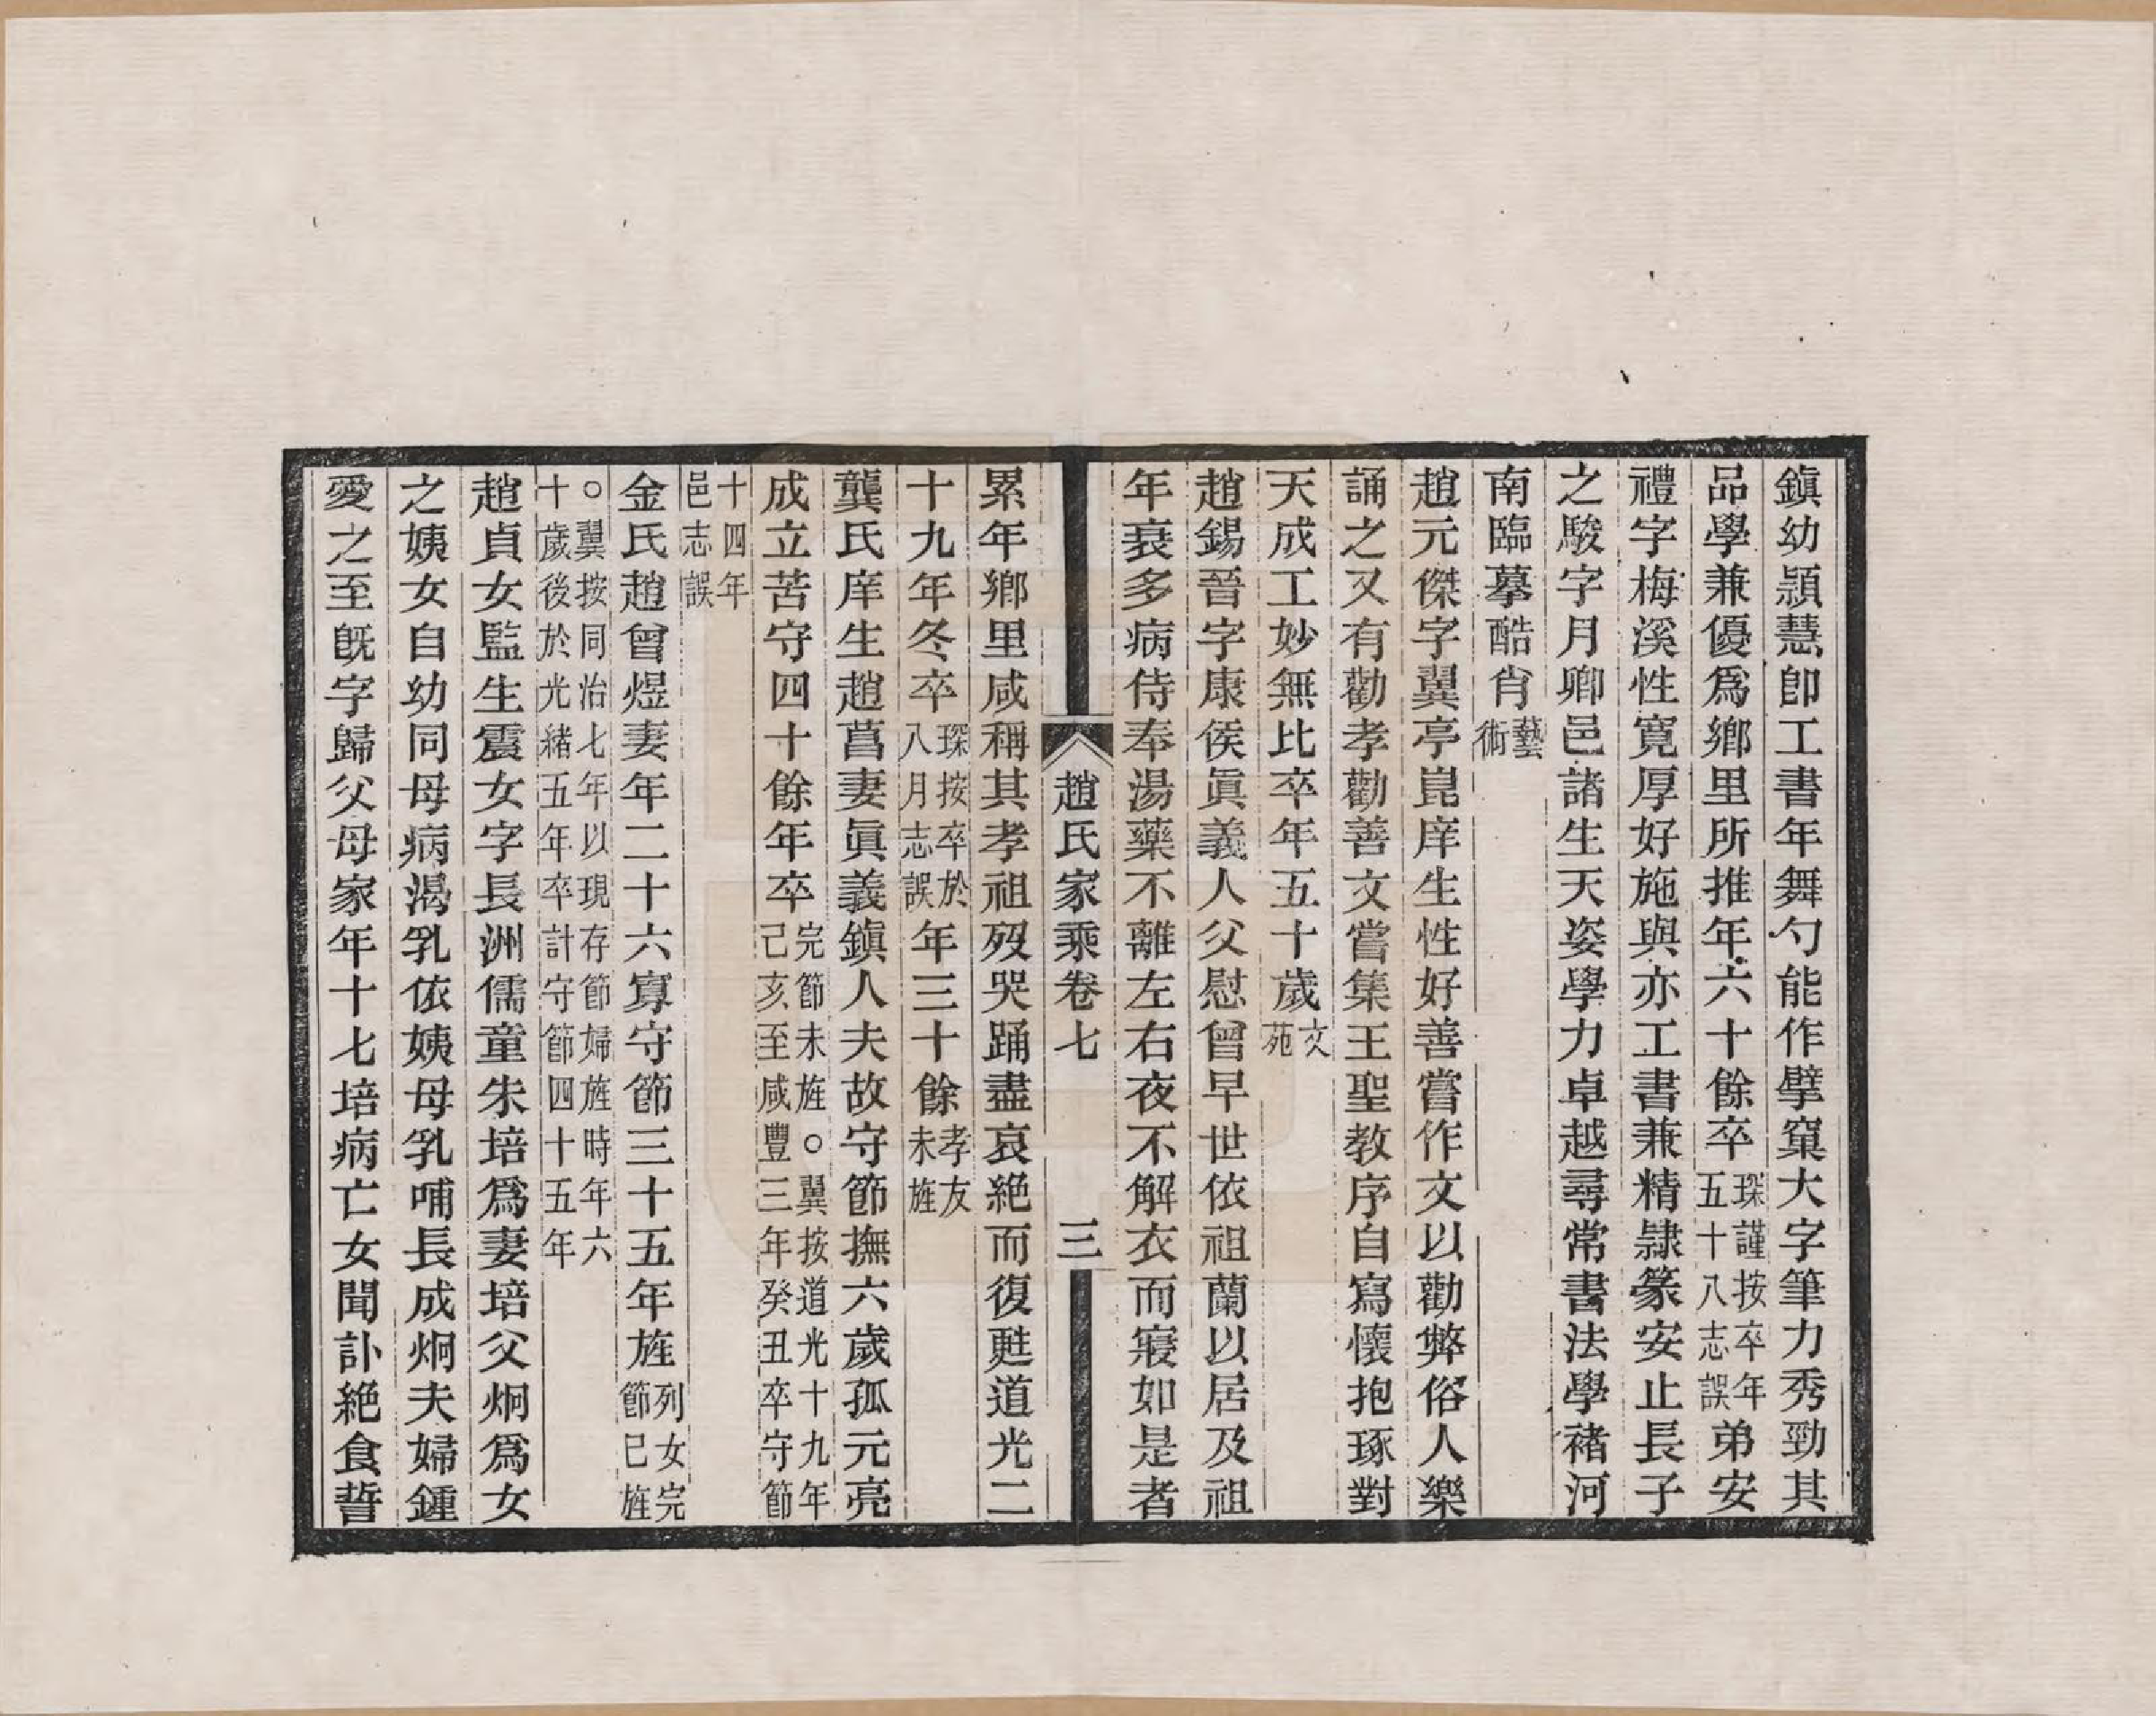 鎭幼頴慧卽工書年舞勺能作擘窠大字筆力秀勁其
品學兼優爲鄉里所推年六十餘卒琛謹按卒年五十八志誤弟安
禮字梅溪性寬厚好施與亦工書兼精隷篆安止長子
之駿字月卿邑諸生天姿學力卓越尋常書法學褚河
南臨摹酷肖藝術
趙元傑字翼亭崑庠生性好善嘗作文以勸弊俗人樂
誦之又有勸孝勸善文嘗集王聖教序自寫懷抱琢對
天成工妙無比卒年五十歲文苑
趙錫晉字康侯眞義人父慰曾早世依祖蘭以居及祖
年衰多病侍奉湯藥不離左右夜不解衣而寢如是者
趙氏家乘卷七　三
累年鄉里咸稱其孝祖歿哭踊盡哀絕而復甦道光二
十九年冬卒琛按卒於八月志誤年三十餘孝友未旌
龔氏庠生趙菖妻眞義鎭人夫故守節撫六歲孤元亮
成立苦守四十餘年卒完節未旌○翼按道光十九年己亥至咸豐三年癸丑卒守節
十四年邑志誤
金氏趙曾煜妻年二十六寡守節三十五年旌列女完節已旌
○翼按同治七年以現存節婦旌時年六十歲後於光緒五年卒計守節四十五年
趙貞女監生震女字長洲儒童朱培爲妻培父炯爲女
之姨女自幼同母病渴乳依姨母乳哺長成炯夫婦鍾
愛之至旣字歸父母家年十七培病亡女聞訃絕食誓